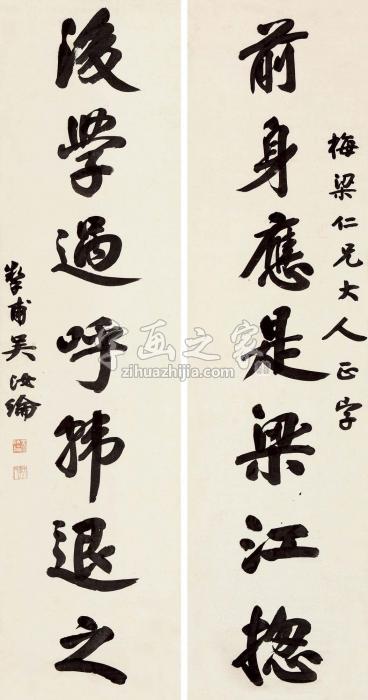 梅梁仁兄大人正字
前身應是梁江揔
後學過呼韓退之
摯甫吳汝綸
字画之家
zihuazhijia.com